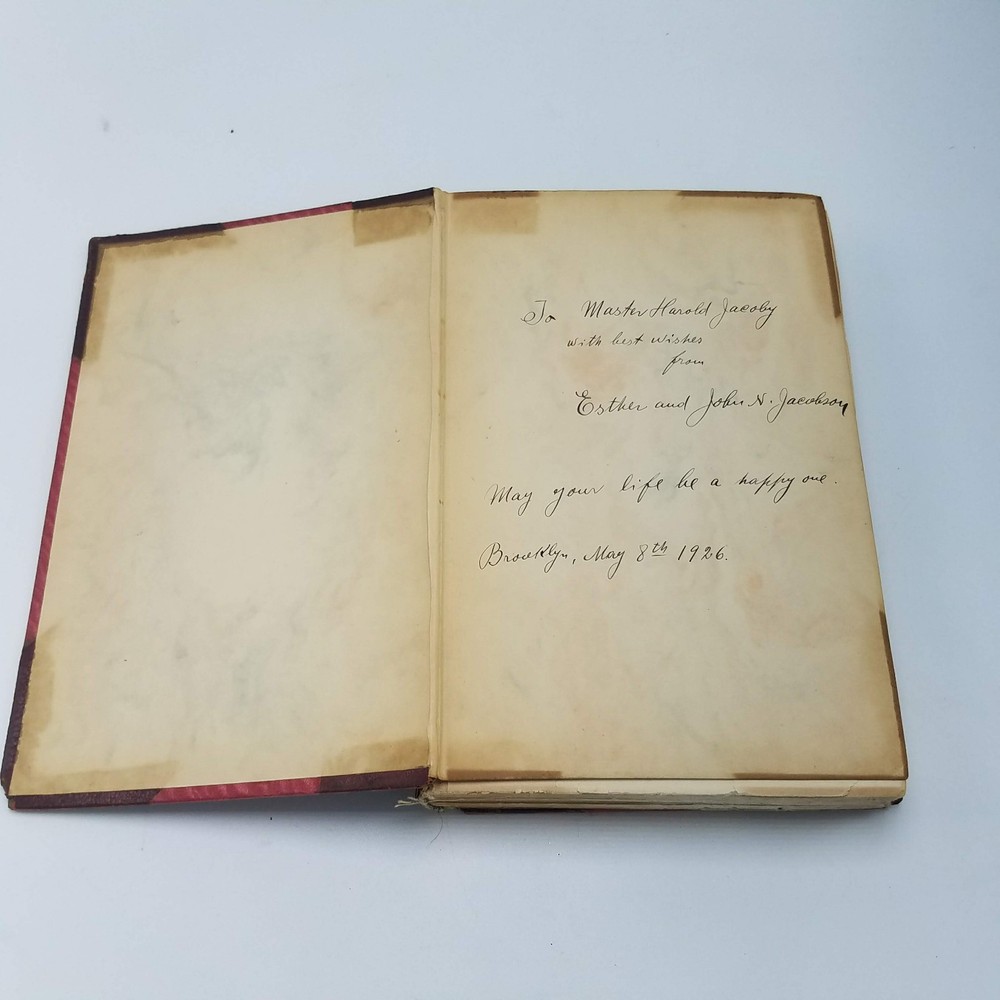 To Master Harold Jacoby
with best wishes
from
Esther and John N. Jacobson
May your life be a happy one.
Brooklyn, May 8th 1926.